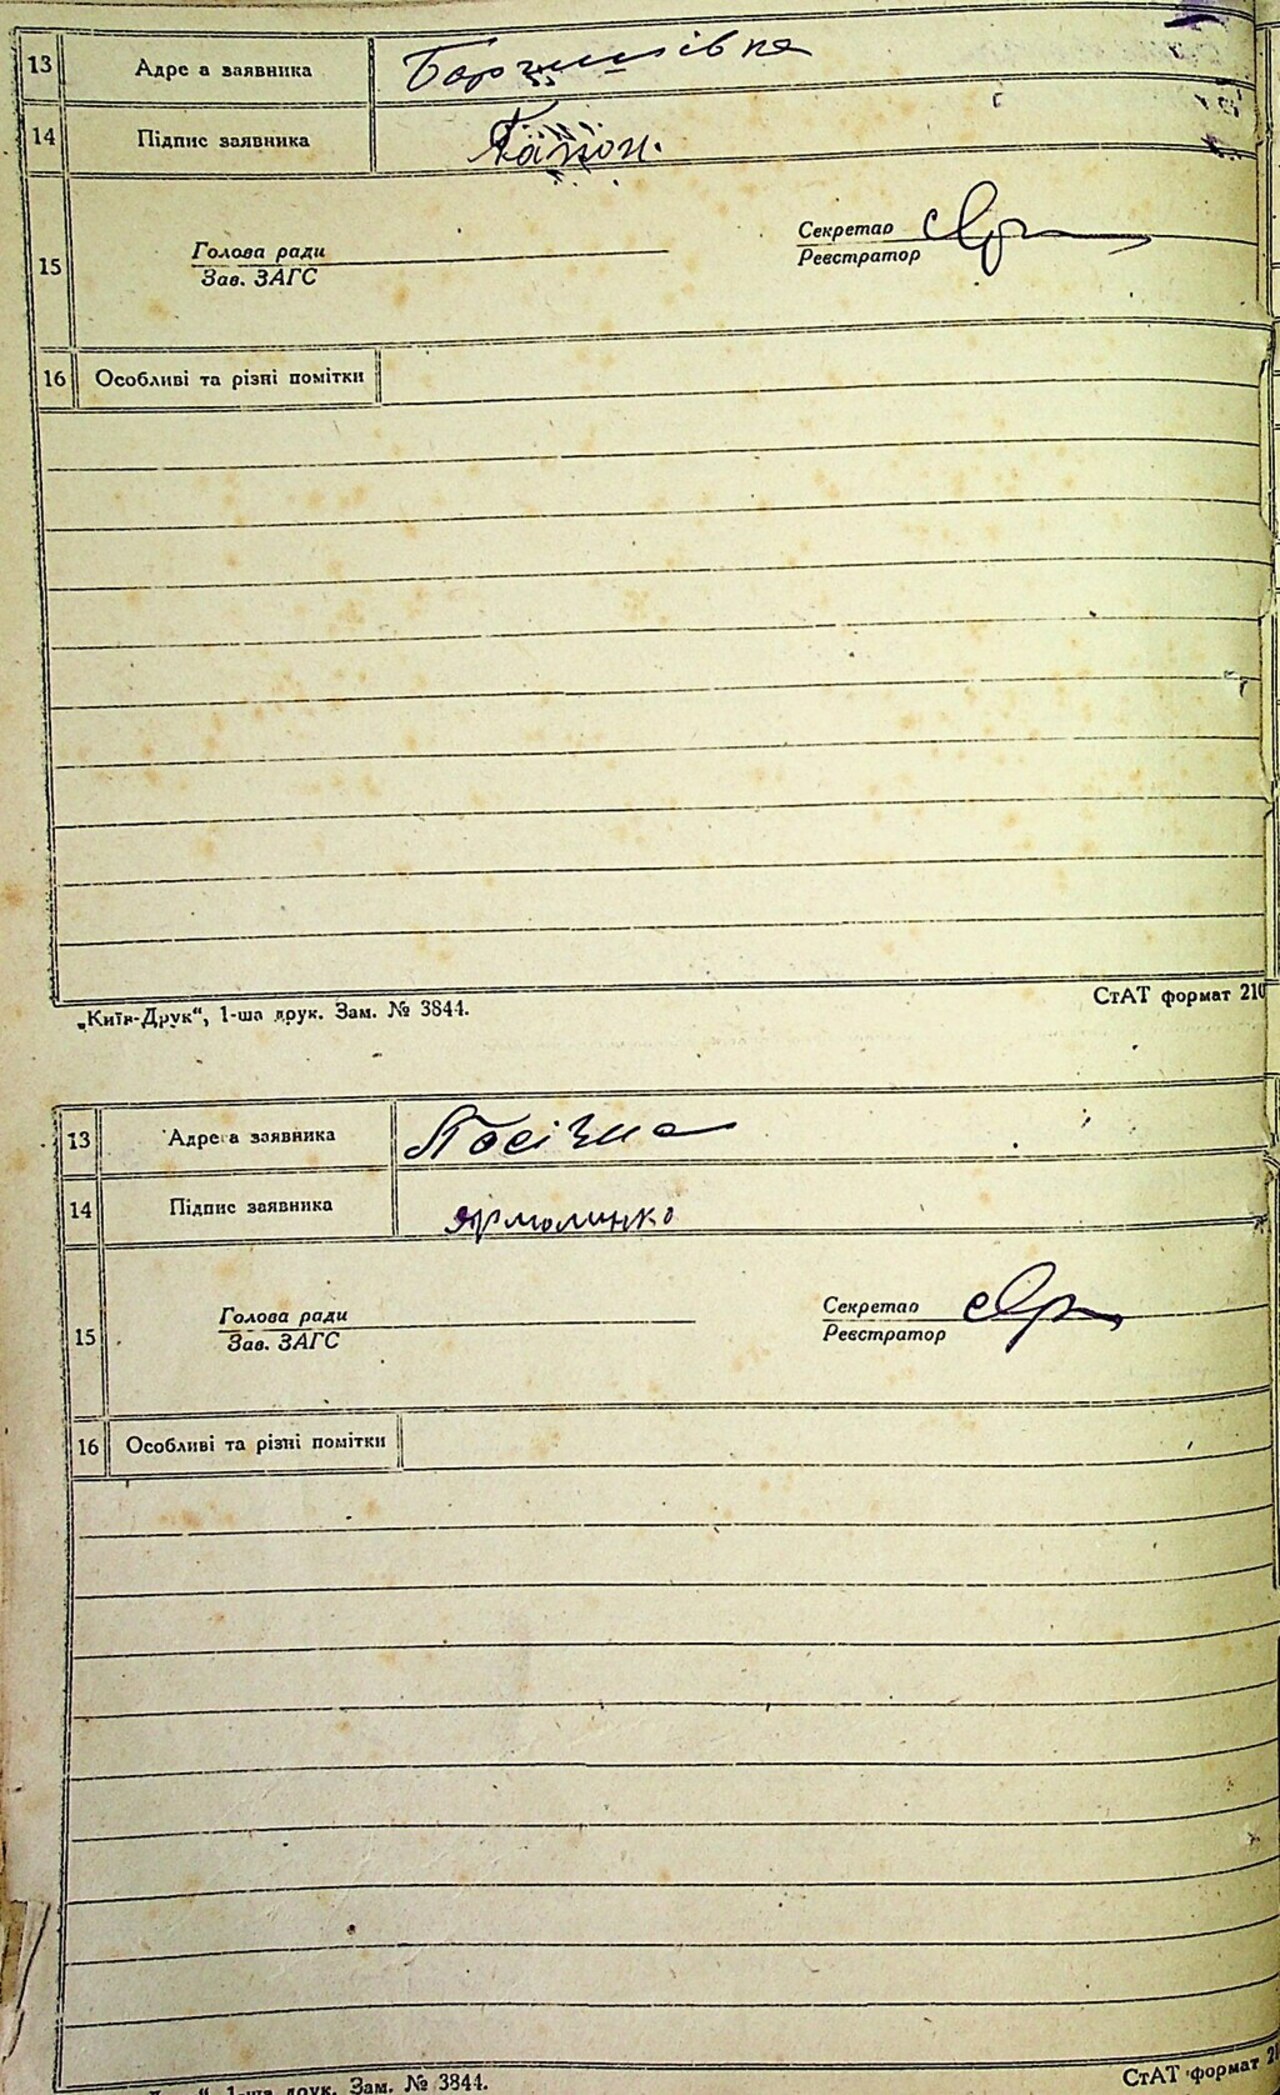 13 Адреса заявника
14 Підпис заявника Гапон.
15 Голова ради Секретар
Зав. ЗАГС Реєстратор
16 Особливі та різні помітки
„Київ-Друк“, 1-ша друк. Зам. № 3844. СтАТ формат 210
13 Адреса заявника
14 Підпис заявника Ярмолинко
15 Голова ради Секретар
Зав. ЗАГС Реєстратор
16 Особливі та різні помітки
1-ша друк. Зам. № 3844. СтАТ формат